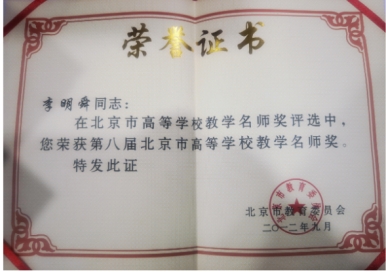 荣誉证书
李明舜同志：
在北京市高等学校教学名师奖评选中，
您荣获第八届北京市高等学校教学名师奖。
特发此证
北京市教育委员会
二〇一二年九月